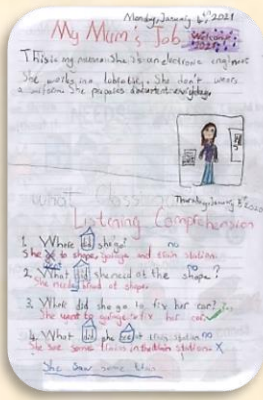 Monday, January 6th, 2021
My Mum's Job
Welcome 2021
This is my mum. She is an electronic engineer
She works in a labratory. She don't wears
a uniform. She prepares document everyday.
Thursday, January
Listening Comprehension
1. Where did she go? no
She go to shope, garage and train station.
2. What did she need at the shope? no
She need of shope.
3. Where did she go to fix her car? Yes
She went to garage to fix her car.
4. What did she see at train station no
She see some trains in the train station X
She saw some